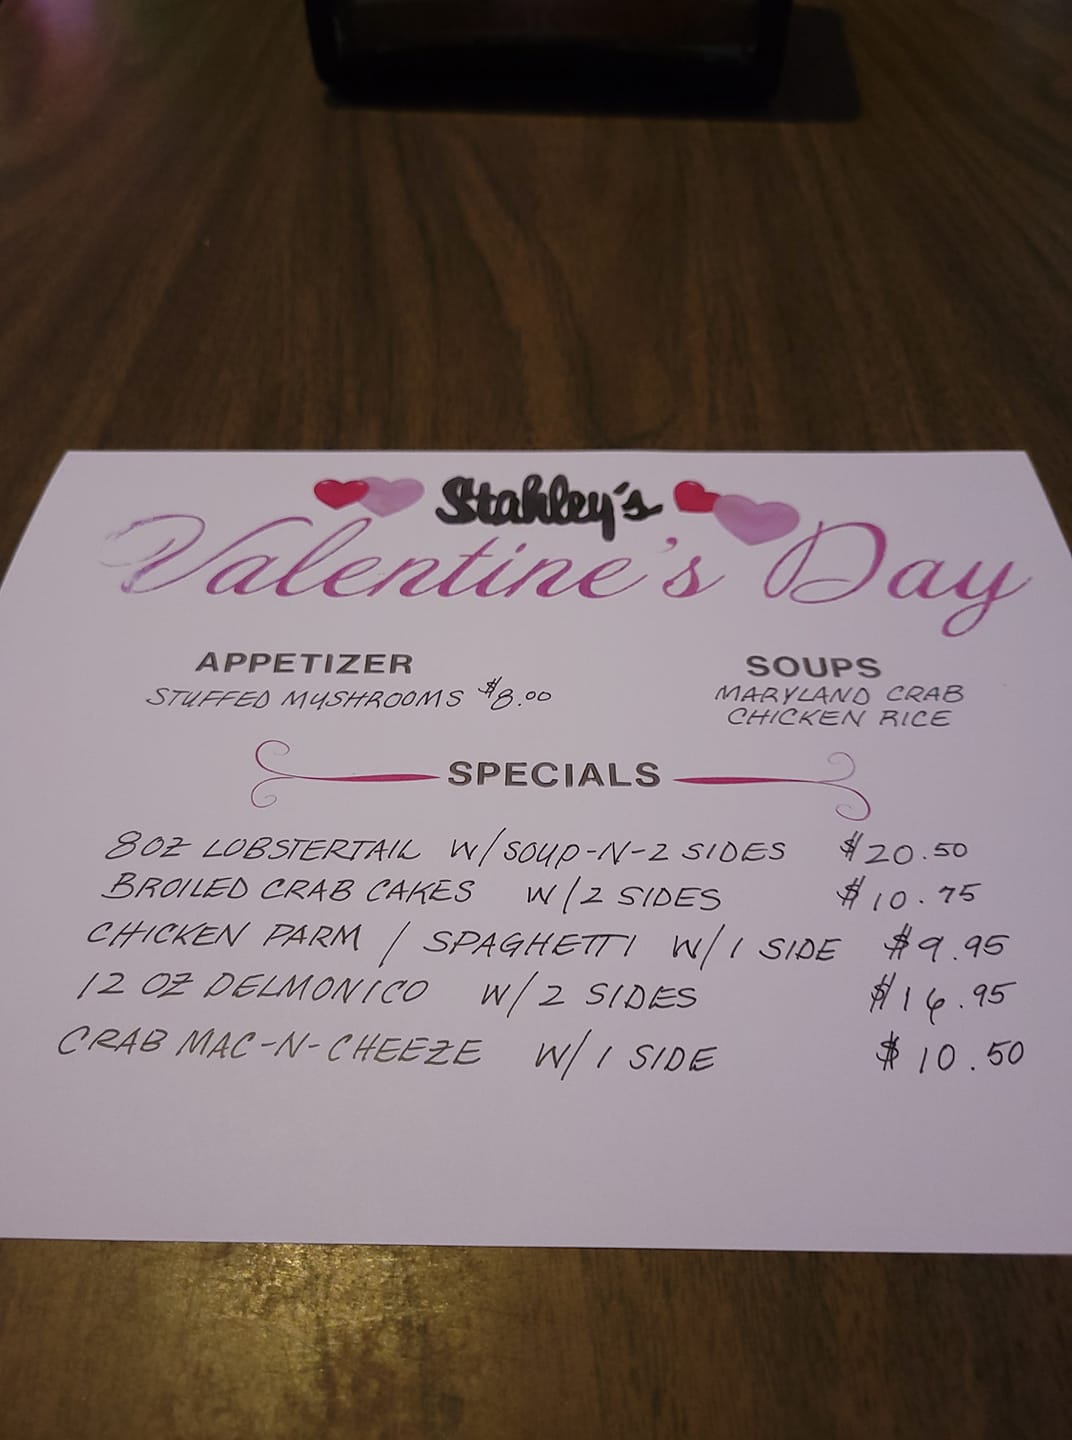 Stahley's
Valentine's Day
APPETIZER
STUFFED MUSHROOMS $8.00
SOUPS
MARYLAND CRAB
CHICKEN RICE
SPECIALS
8OZ LOBSTERTAIL W/SOUP-N-2 SIDES $20.50
BROILED CRAB CAKES W/2 SIDES $10.75
CHICKEN PARM / SPAGHETTI W/1 SIDE $9.95
12 OZ DELMONICO W/2 SIDES $16.95
CRAB MAC-N-CHEEZE W/1 SIDE $10.50